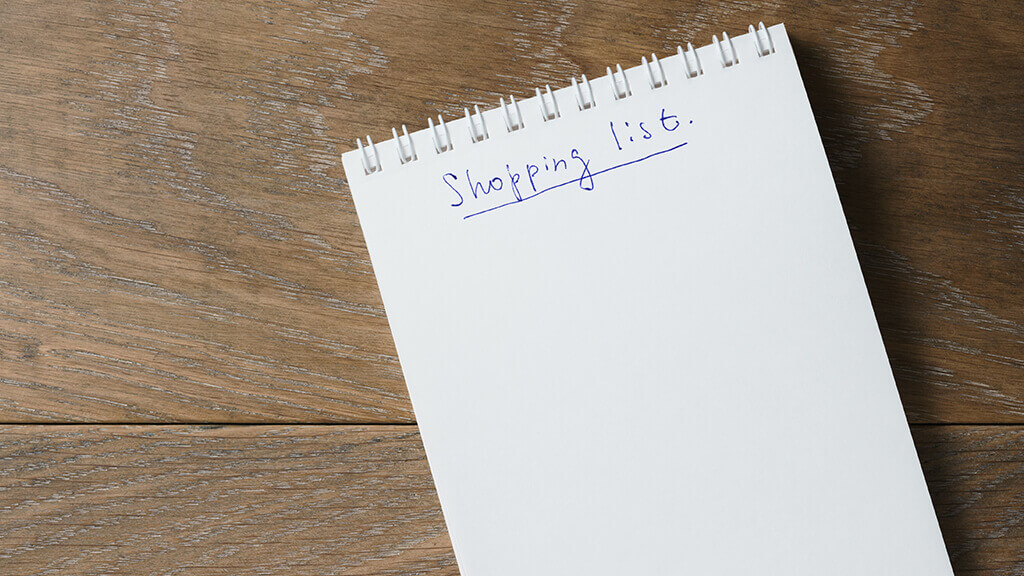 Shopping list.